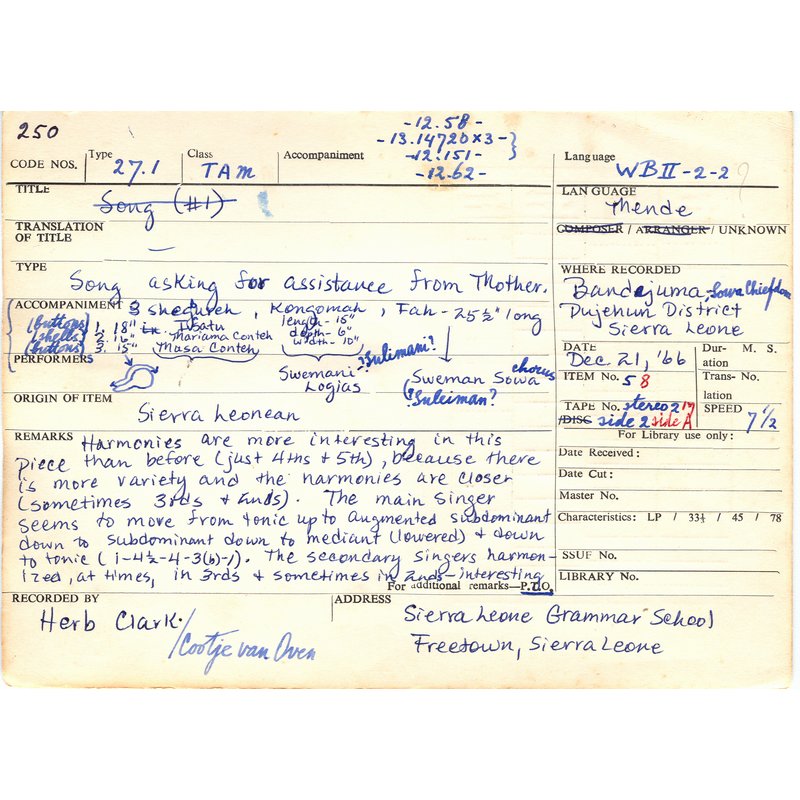 250
-12.58-
-13.14720x3-
-12.151-
-12.62-
CODE NOS. Type 27.1 Class TAM Accompaniment Language WBII-2-2
TITLE Song (#1)
LANGUAGE Mende
TRANSLATION OF TITLE —
COMPOSER / ARRANGER / UNKNOWN
TYPE Song asking for assistance from Mother.
WHERE RECORDED
Bandajuma, Sowa Chiefdom
Dujehun District
Sierra Leone
ACCOMPANIMENT 3 shegureh, Kongomah, Fah - 25½" long
(buttons) 1. 18" Isatu
(shells) 2. 16" Mariama Conteh
(buttons) 3. 15" Musa Conteh
length - 15"
depth - 6"
width - 10"
PERFORMERS
Swemani Logias
?Sulimani?
Sweman Sowa chorus
(?Suleiman?
DATE Dec 21, '66
Duration M. S.
ITEM No. 58
Translation No.
TAPE No. stereo 2 17
/DISC side 2 side A
SPEED 7 1/2
ORIGIN OF ITEM
Sierra Leonean
For Library use only:
REMARKS Harmonies are more interesting in this
piece than before (just 4ths & 5th), because there
is more variety and the harmonies are closer
(sometimes 3rds & 2nds). The main singer
seems to move from tonic up to augmented subdominant
down to subdominant down to mediant (lowered) & down
to tonic (1-4½-4-3(b)-1). The secondary singers harmon-
ized, at times, in 3rds & sometimes in 2nds - interesting
For additional remarks—P.T.O.
Date Received:
Date Cut:
Master No.
Characteristics: LP / 33⅓ / 45 / 78
SSUF No.
LIBRARY No.
RECORDED BY
Herb Clark.
/Cootje van Oven
ADDRESS
Sierra Leone Grammar School
Freetown, Sierra Leone